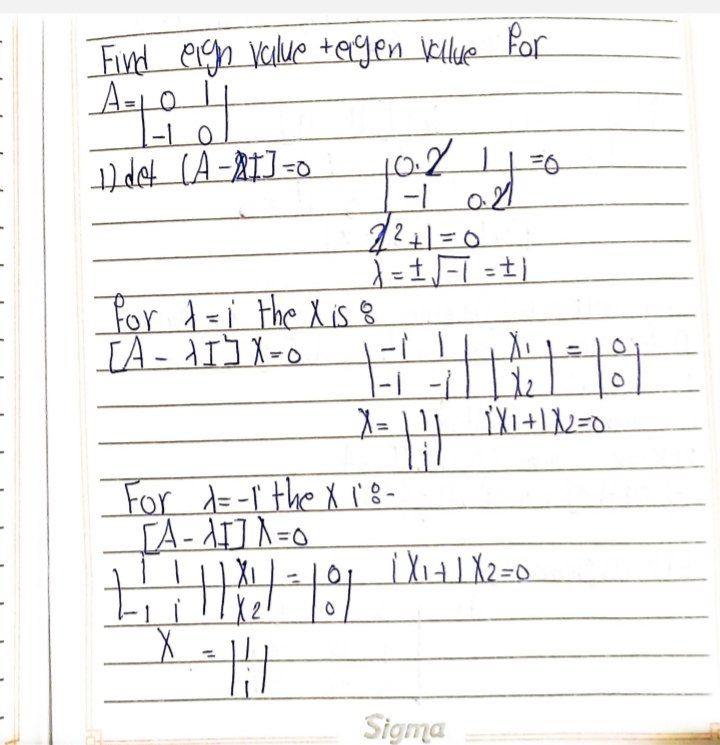 Find eign value + eigen vallue for
A = | 0 1 |
| -1 0 |
1) det [A - λI] = 0 | 0.λ 1 | = 0
| -1 0.λ |
λ² + 1 = 0
λ = ± √-1 = ± i
for λ = i the X is :
[A - λI] X = 0 | -i 1 | | X₁ | = | 0 |
| -1 -i | | X₂ | | 0 |
X = | 1 | iX₁ + 1X₂ = 0
| i |
For λ = -i the X i :-
[A - λI] λ = 0
| i 1 | | X₁ | = | 0 | iX₁ + 1X₂ = 0
| -1 i | | X₂ | | 0 |
X = | 1 |
| i |
Sigma